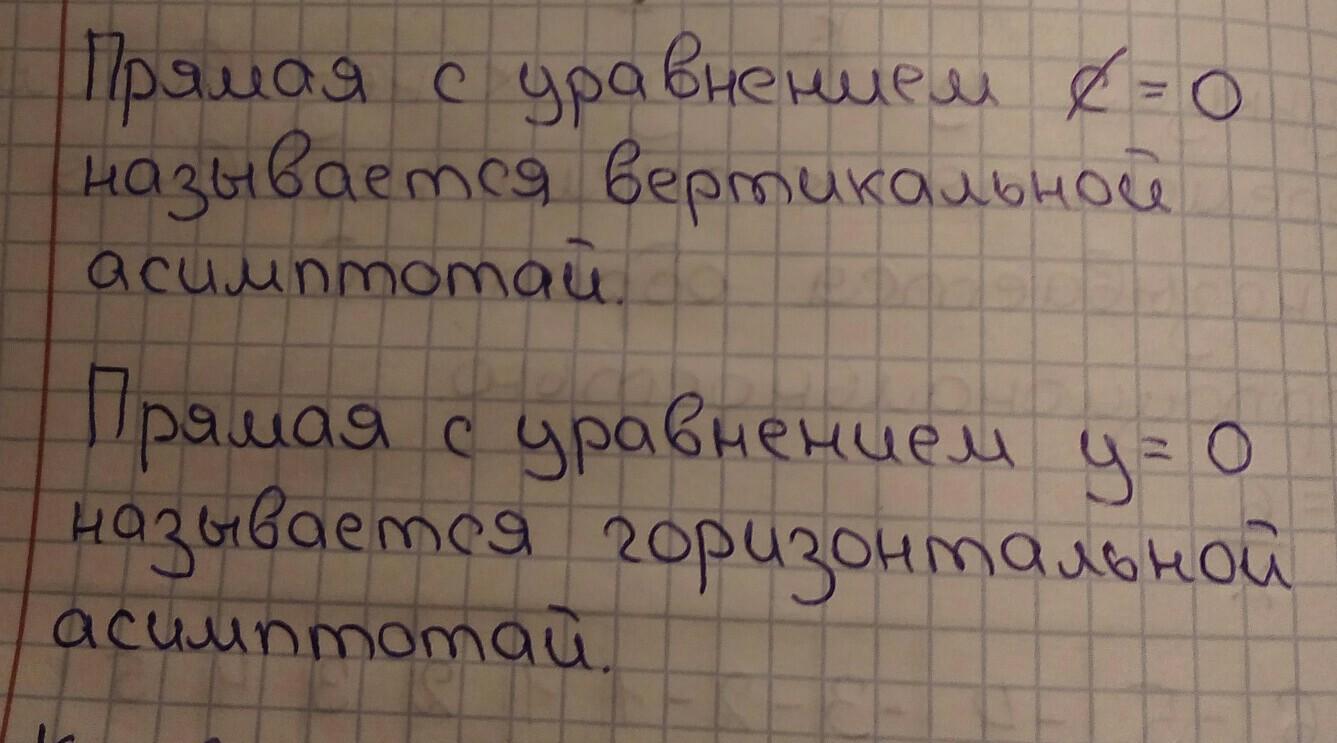 Прямая с уравнением x = 0
называется вертикальной
асимптотай.
Прямая с уравнением y = 0
называется горизонтальной
асимптотай.